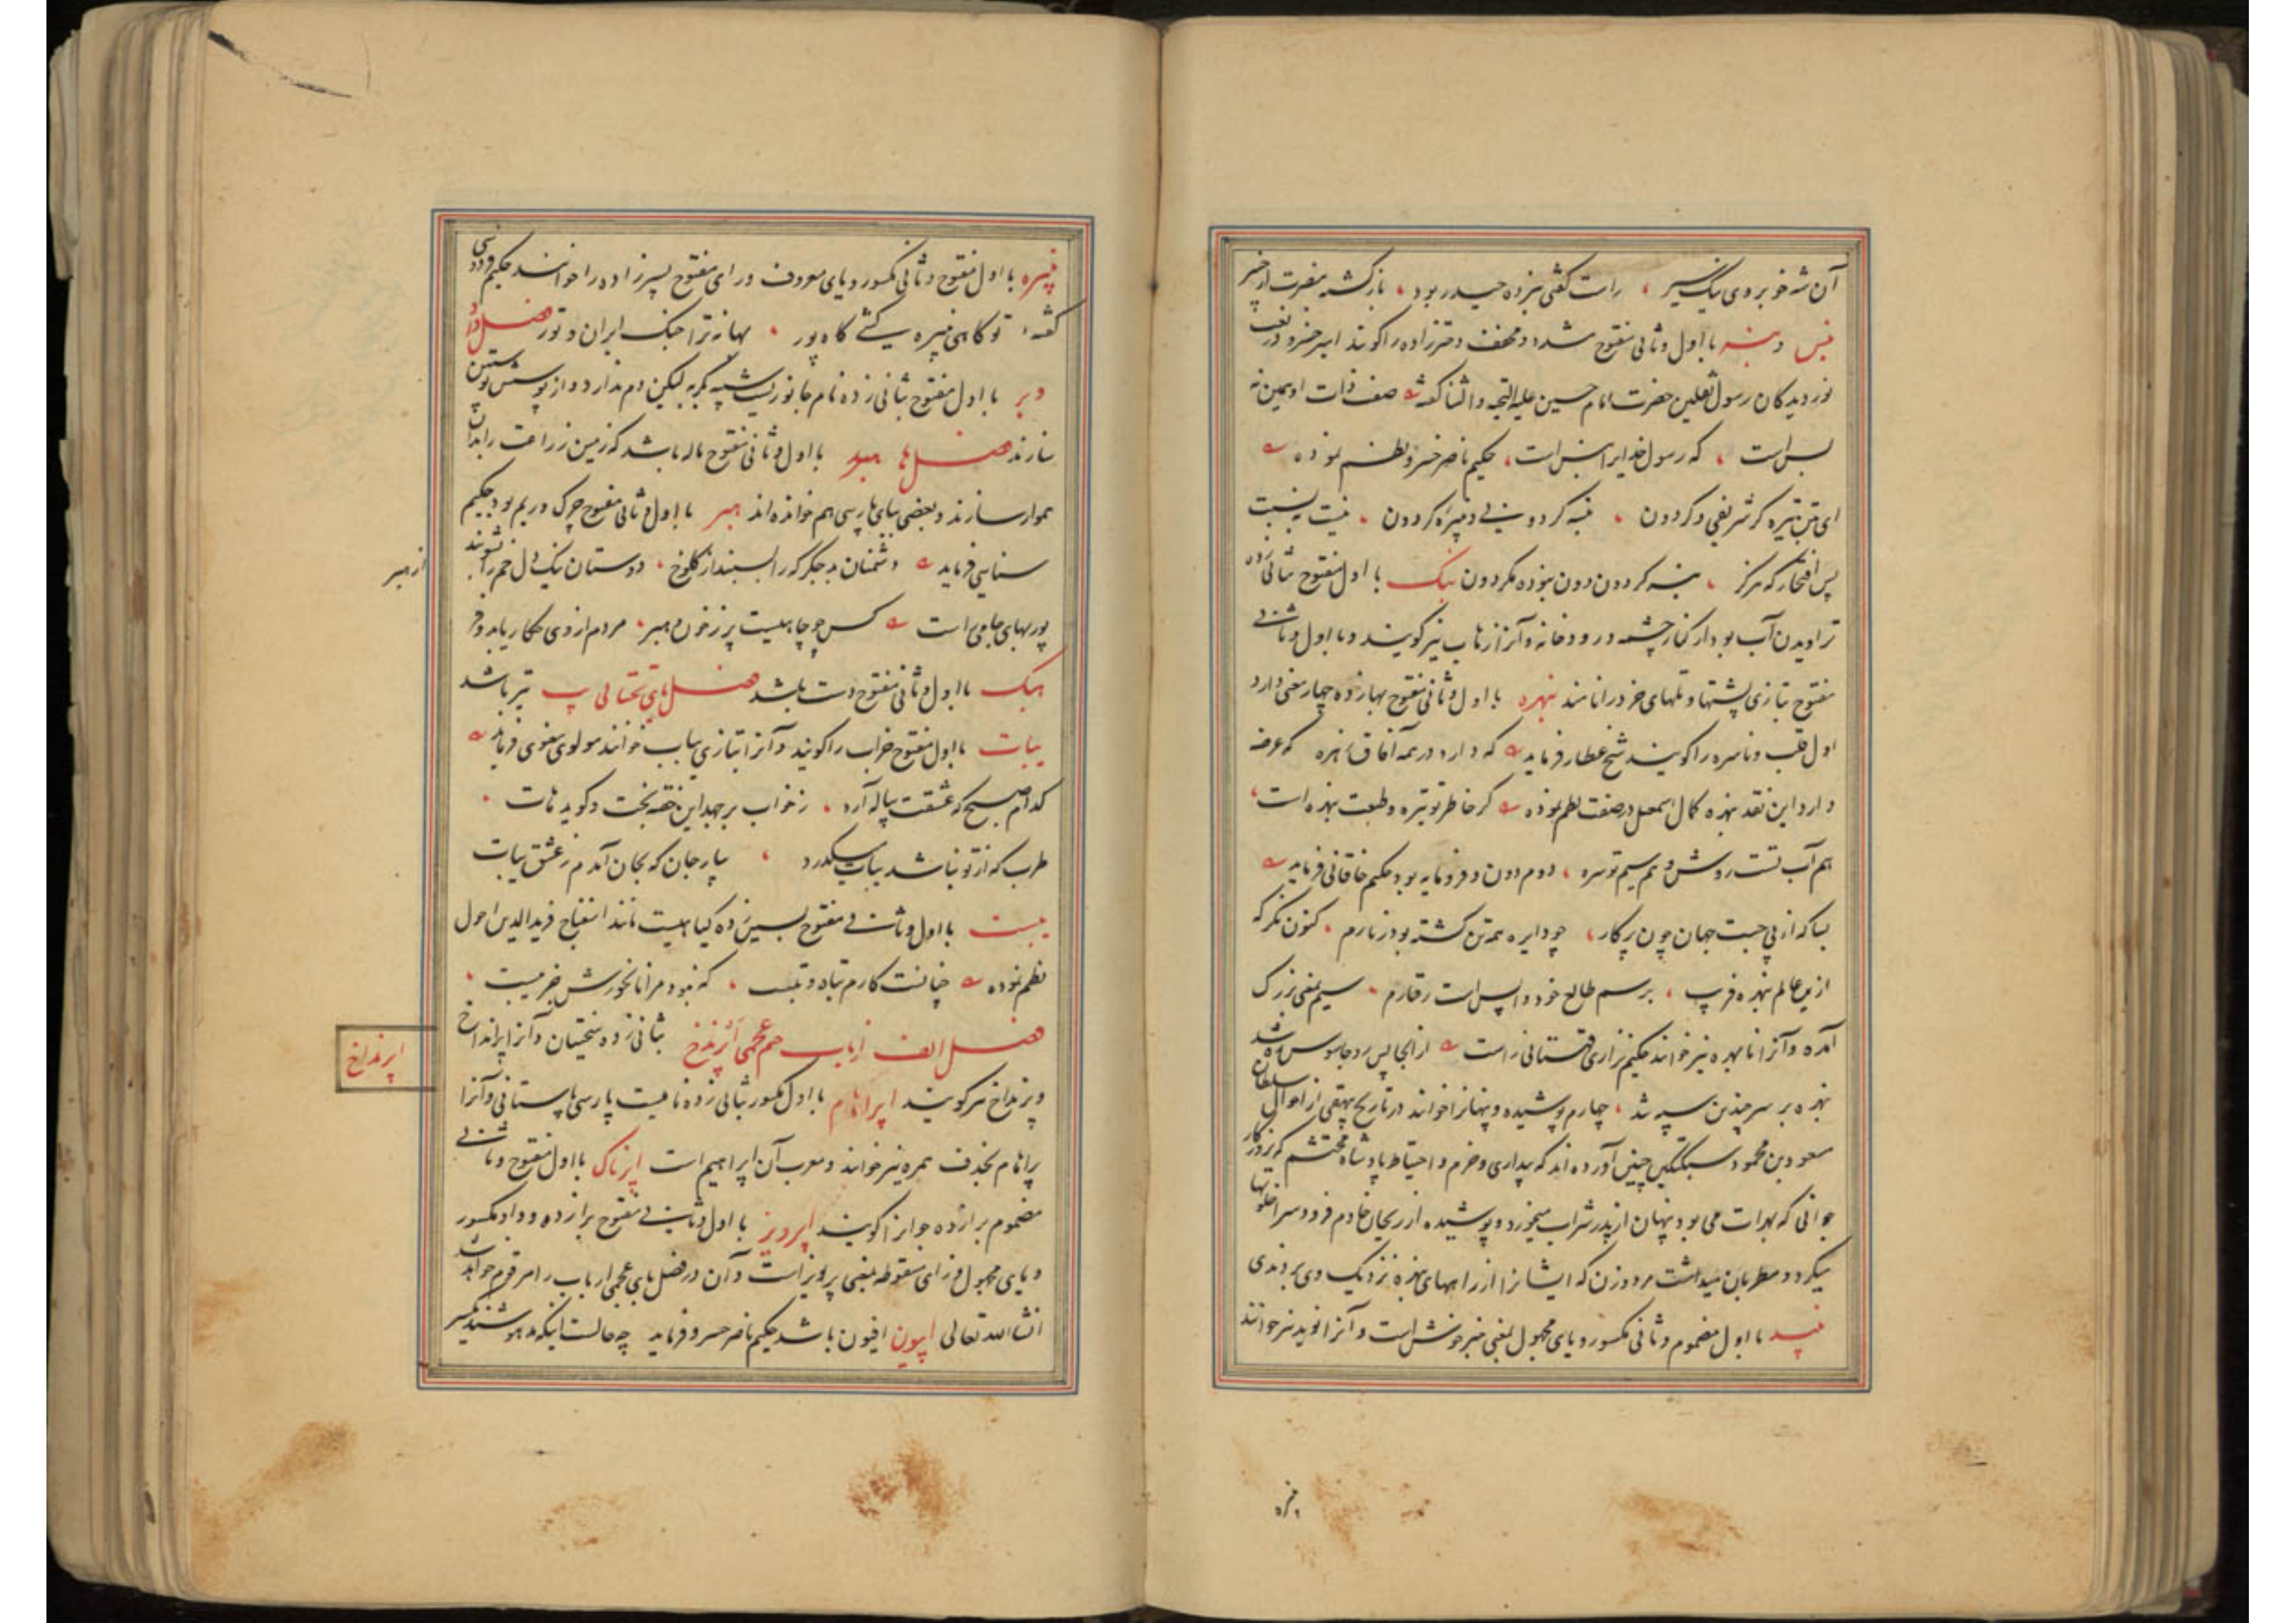 آن شه خوبروی یک
راست گفتی نبرده حیدر بود
باول وثانی مفتوح مشدد و مخفف دخترزاده را گویند امیر خسرو در نعت
نور دیدگان رسول ثقلین حضرت امام حسین علیه التحیه والثنا گفته صفت ذات او همین نه
بس است که رسول خدایرا نبس است حکیم ناصر خسرو نظم نموده
پس افتخار که هرگز نبسه گردون دون نبوده مگر دون نبک با اول مفتوح بثانی زده
تراویدن آب بود از کنار چشمه و رودخانه و آنرا زهاب نیز گویند و با اول وثانی
مفتوح بتازی پشتها و تلهای خرد را نامند نبهره با اول وثانی مفتوح بهازده چهار معنی دارد
اول قلب و ناسره را گویند شیخ عطار فرماید که دارد در همه آفاق زهره که عرضه
دارد این نقد نبهره کمال اسمعیل در صفت نظم نموده گر خاطر تو تیره و طبعت نبهره است
هم آب تست روشن و هم سیم تو سره دوم دون و فرومایه بود حکیم خاقانی فرماید
بسا که از پی جست جهان چون پرکار چو دایره همه تن گشته بود زنارم کنون نگر که
ازین عالم نبهره فریب برسم طالع خود واپس است رفتارم سیم بمعنی بزرگ
آمده و آنرا نابهره نیز خوانند حکیم نزاری قهستانی راست از انجا پس رو جاسوس ره شد
نبهره بر سر چندین سپه شد چهارم پوشیده و پنهانرا خوانند در تاریخ بیهقی از احوال سلطان
مسعود بن محمود سبکتکین چنین آورده اند که بیداری و حزم و احتیاط پادشاه محتشم که بروزگار
جوانی که بهرات می بود پنهان از پدر شراب میخورد و پوشیده از ریحان خادم فرود سرا خلوتها
میکرد و مطربان میداشت مرد و زن که ایشانرا از راههای نبهره نزدیک وی بردندی
نبید با اول مضموم وثانی مکسور و یای مجهول بمعنی خبر خوش است و آنرا نوید نیز خوانند
نبیره با اول مفتوح وثانی مکسور و یای معروف و رای مفتوح پسرزاده را خوانند حکیم فردوسی
گفته توگاهی نبیره کشی گاه پور بهانه ترا جنگ ایران و تور فصل واو
وبر با اول مفتوح بثانی زده نام جانوریست شبیه بگربه لیکن دم ندارد و از پوستش پوستین
سازند فصل ها هبد با اول وثانی مفتوح ماله باشد که زمین زراعت را بدان
هموار سازند و بعضی ببای پارسی هم خوانده اند هبر با اول وثانی مفتوح چرک و ریم بود حکیم
سنایی فرماید دشمنان به جگر که را
دوستان نیک دل خم را
از هبر
پور بهای جامی راست کس چو چاهیست پر ز خون و هبر مردم از وی
هبک با اول وثانی مفتوح دست باشد فصل یای تحتانی
یبات با اول مفتوح خراب را گویند و آنرا بتازی یباب خوانند مولوی معنوی فرماید
کدام صبح که عشقت پیاله آرد ز خواب برجهد این خفته بخت و گوید هات
طرب که از تو نباشد یبات میگردد بیار جان که بجان آمدم ز عشق یبات
یبست با اول وثانی مفتوح بسین زده گیاهیست مانند اسفناخ فریدالدین احول
نظم نموده چنانست کارم تباه و تبست که نبود مرا نانخورش جز یبست
فصل الف از باب هم عجمی اپرنداخ بثانی زده سختیان و آنرا پرنداخ
اپرنداخ
و پرنداخ نیز گویند اپراهام با اول مکسور بثانی زده نامیست پارسی باستانی و آنرا
پراهام بحذف همزه نیز خوانند و معرب آن ابراهیم است اپرناک با اول مفتوح وثانی
مضموم برا زده جوانرا گویند اپرویز با اول وثانی مفتوح برا زده و واو مکسور
و یای مجهول و زای منقوطه بمعنی پرویز است و آن در فصل بای عجمی از باب را مرقوم خواهد شد
انشاالله تعالی اپیون افیون باشد حکیم ناصر خسرو فرماید چه حالست اینکه مدهوشند یکسر
نبیره